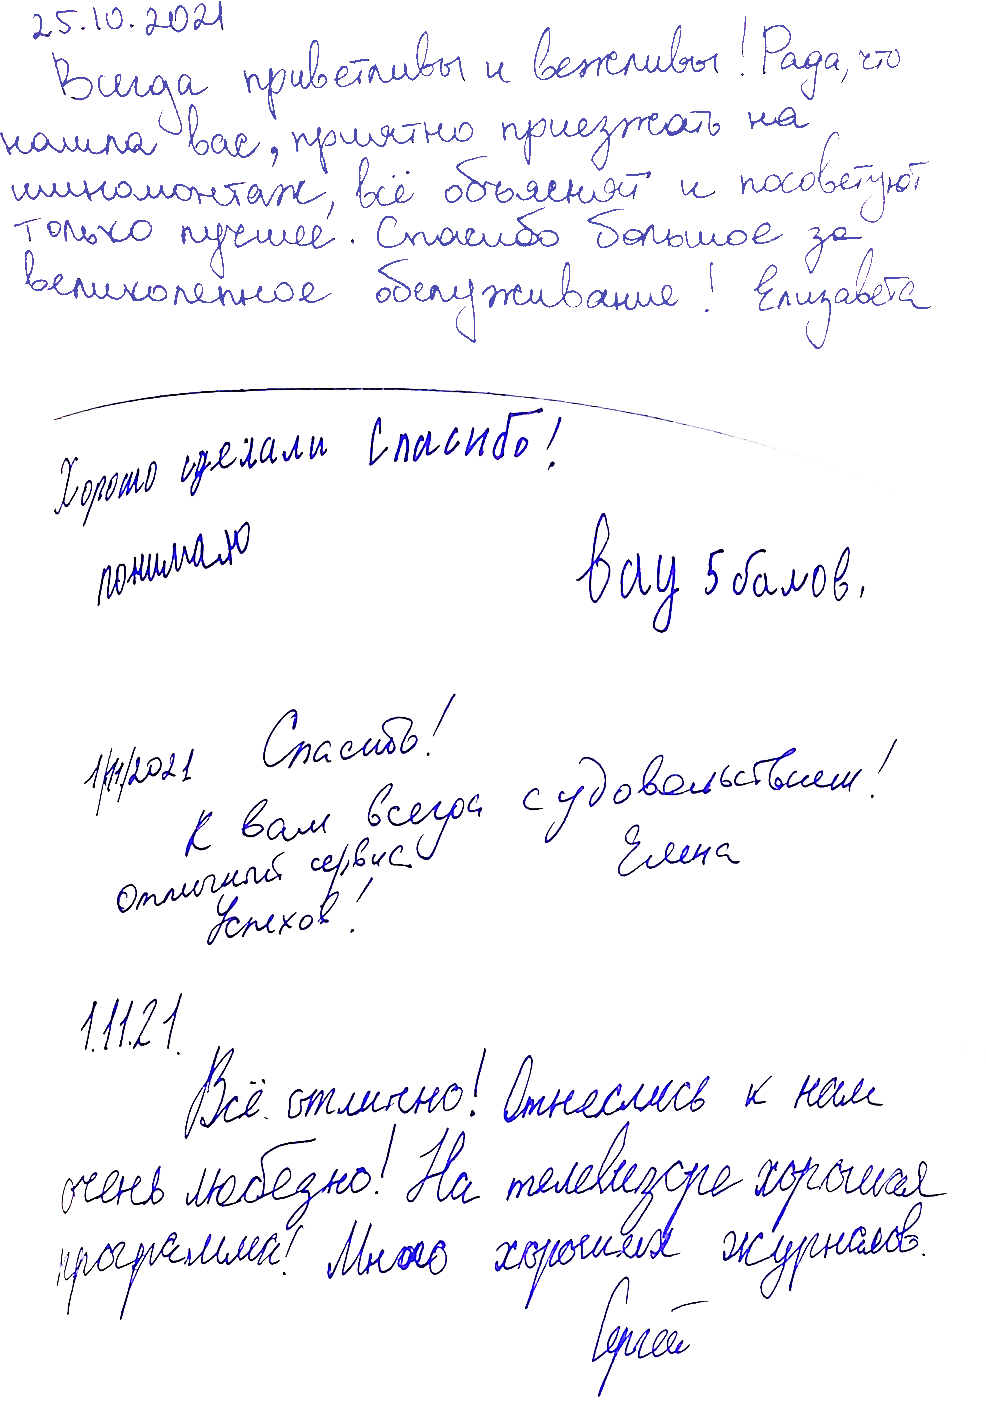 25.10.2021
Всегда приветливы и вежливы! Рада, что
нашла вас, приятно приезжать на
шиномонтаж, всё объяснят и посоветуют
только лучшее. Спасибо большое за
великолепное обслуживание! Елизавета
Хорошо сделали Спасибо!
понимаю
Вау 5 балов.
1/11/2021 Спасибо!
К вам всегда с удовольствием!
Отличный сервис Елена
Успехов!
1.11.21.
Всё отлично! Отнеслись к нам
очень любезно! На телевизоре хорошая
программа! Много хороших журналов.
Сергей